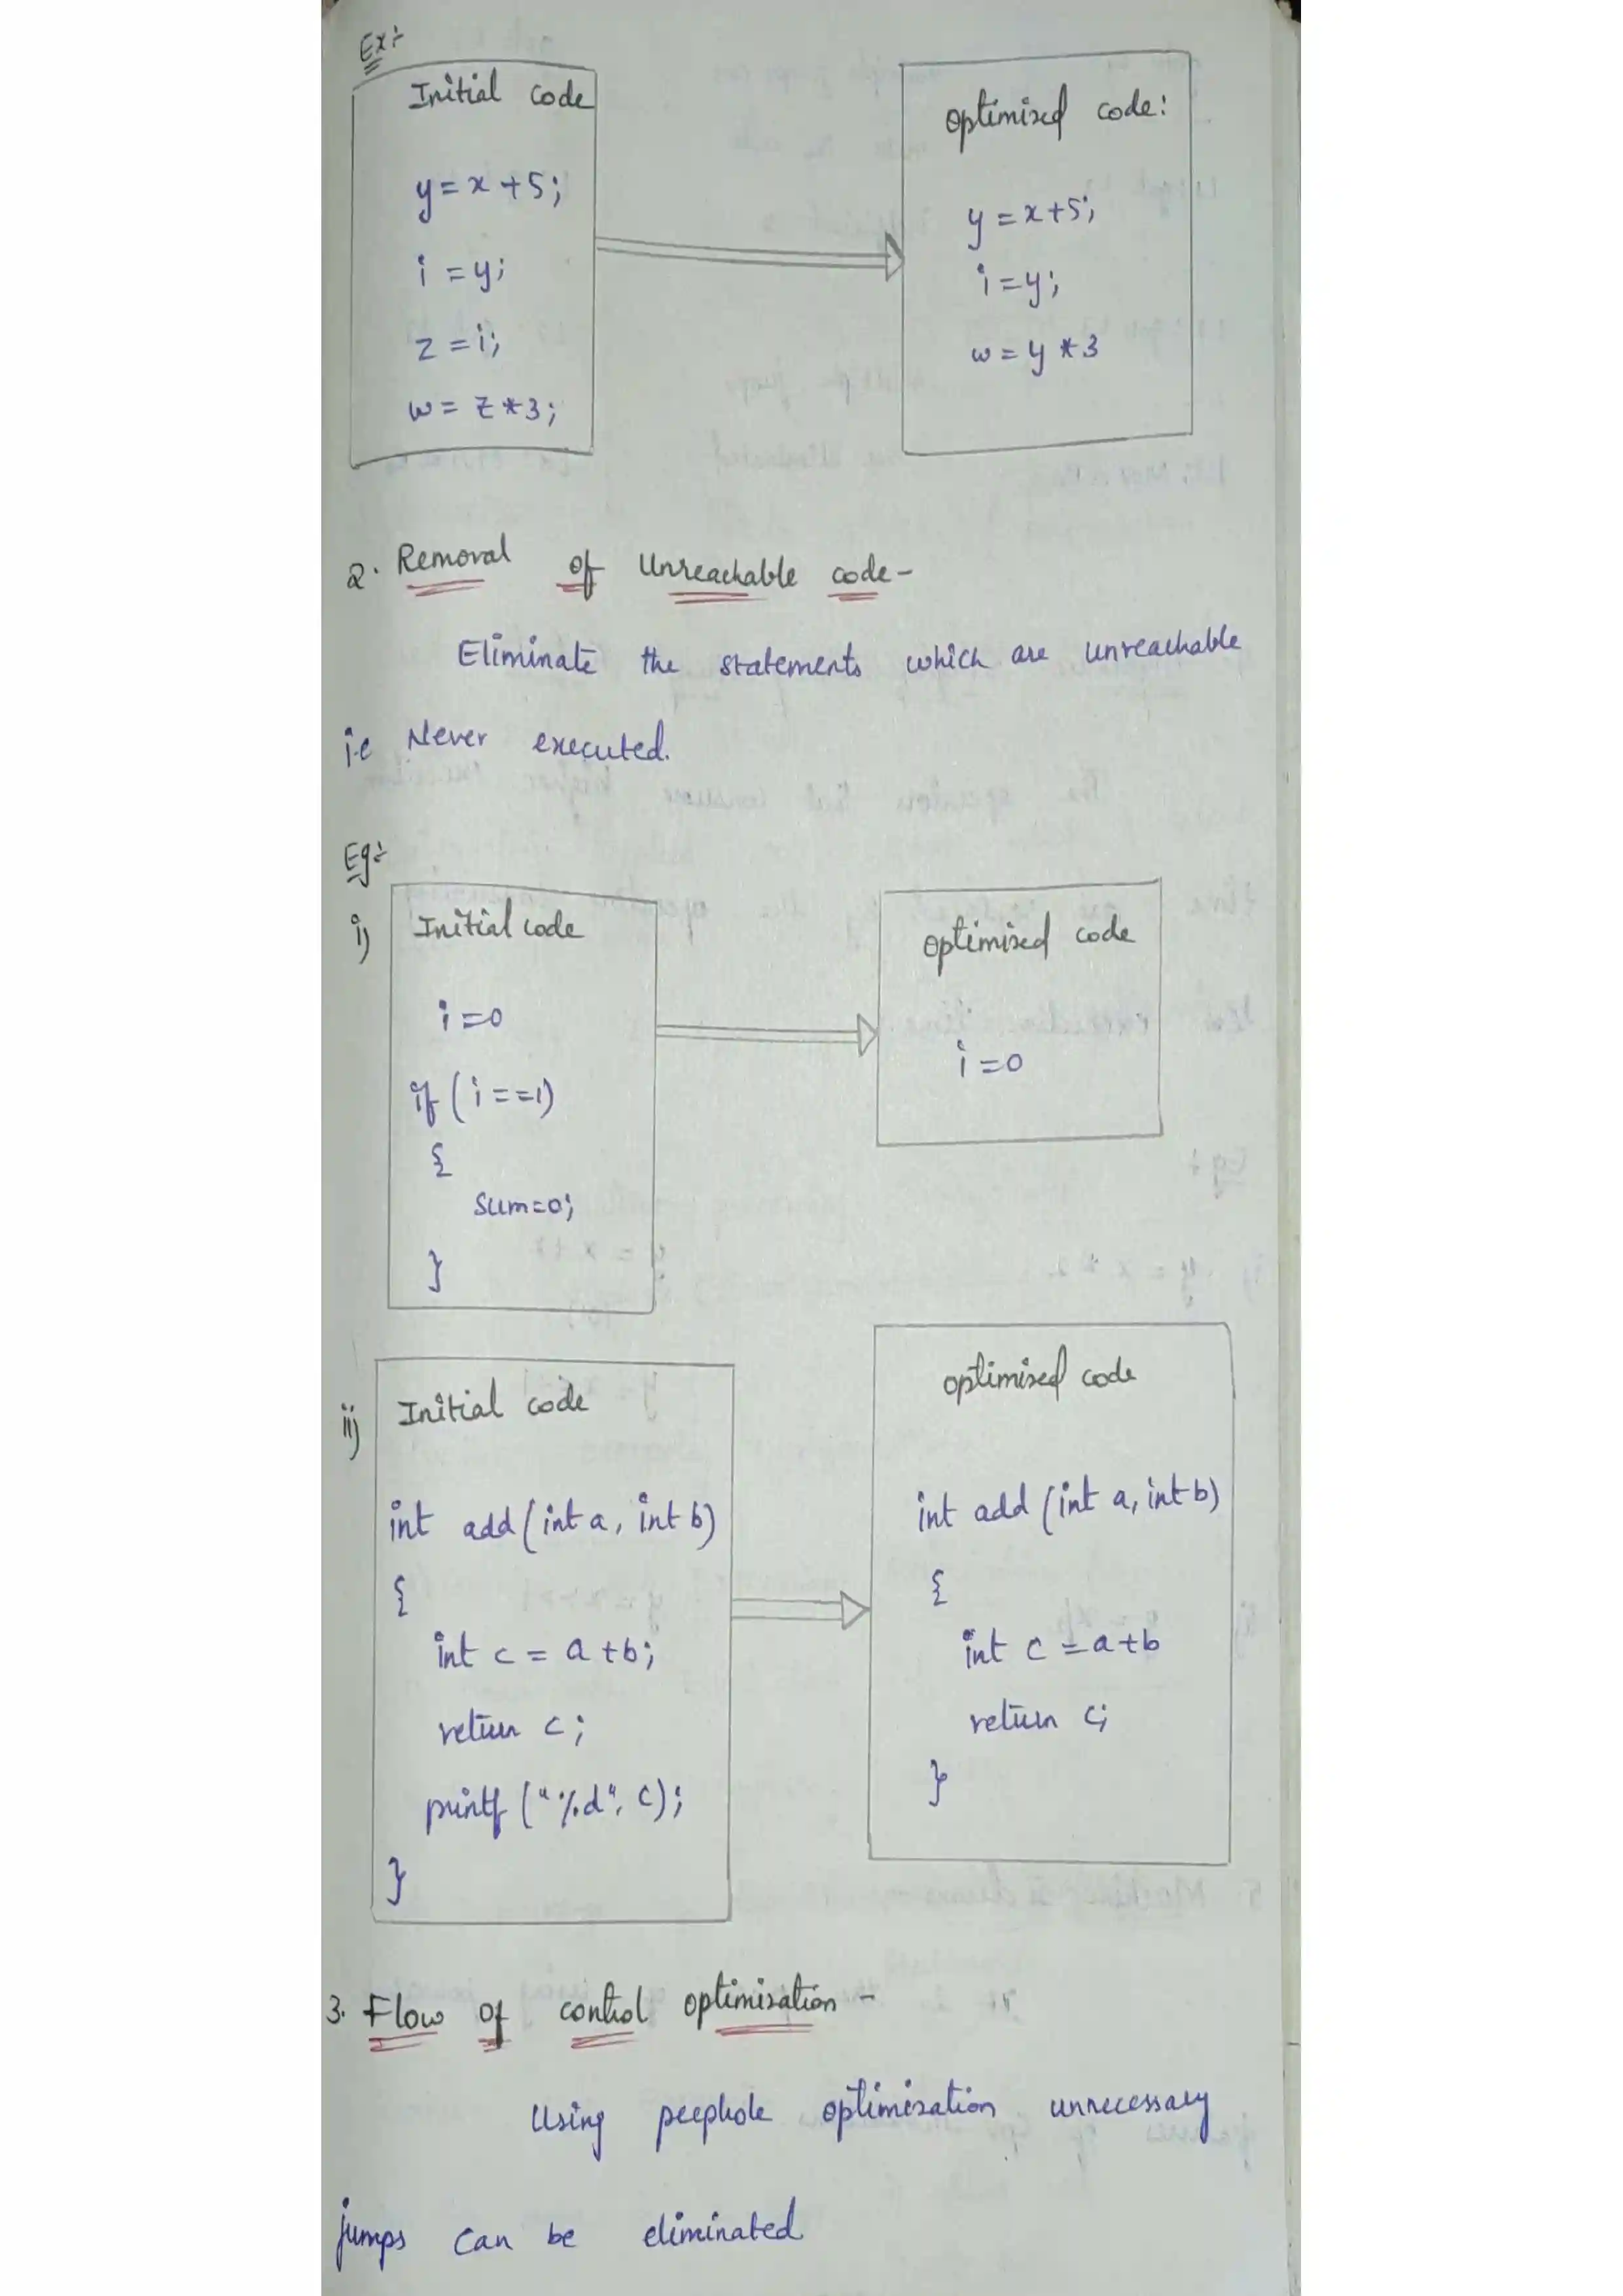 Ex:-
Initial code
y = x + 5;
i = y;
z = i;
w = z * 3;
optimized code:
y = x + 5;
i = y;
w = y * 3
2. Removal of Unreachable code -
Eliminate the statements which are unreachable
i.e Never executed.
Eg:-
i)
Initial code
i = 0
if (i == 1)
{
sum = 0;
}
optimized code
i = 0
ii)
Initial code
int add (int a, int b)
{
int c = a + b;
return c;
printf ("%d", c);
}
optimized code
int add (int a, int b)
{
int c = a + b
return c;
}
3. Flow of control optimization -
Using peephole optimization unnecessary
jumps can be eliminated